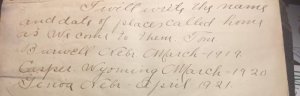 I will write the name
and date of places called home
as we come to them. Tom
Burwell Nebr March - 1919.
Casper. Wyoming March - 1920
Genoa Nebr April 1921